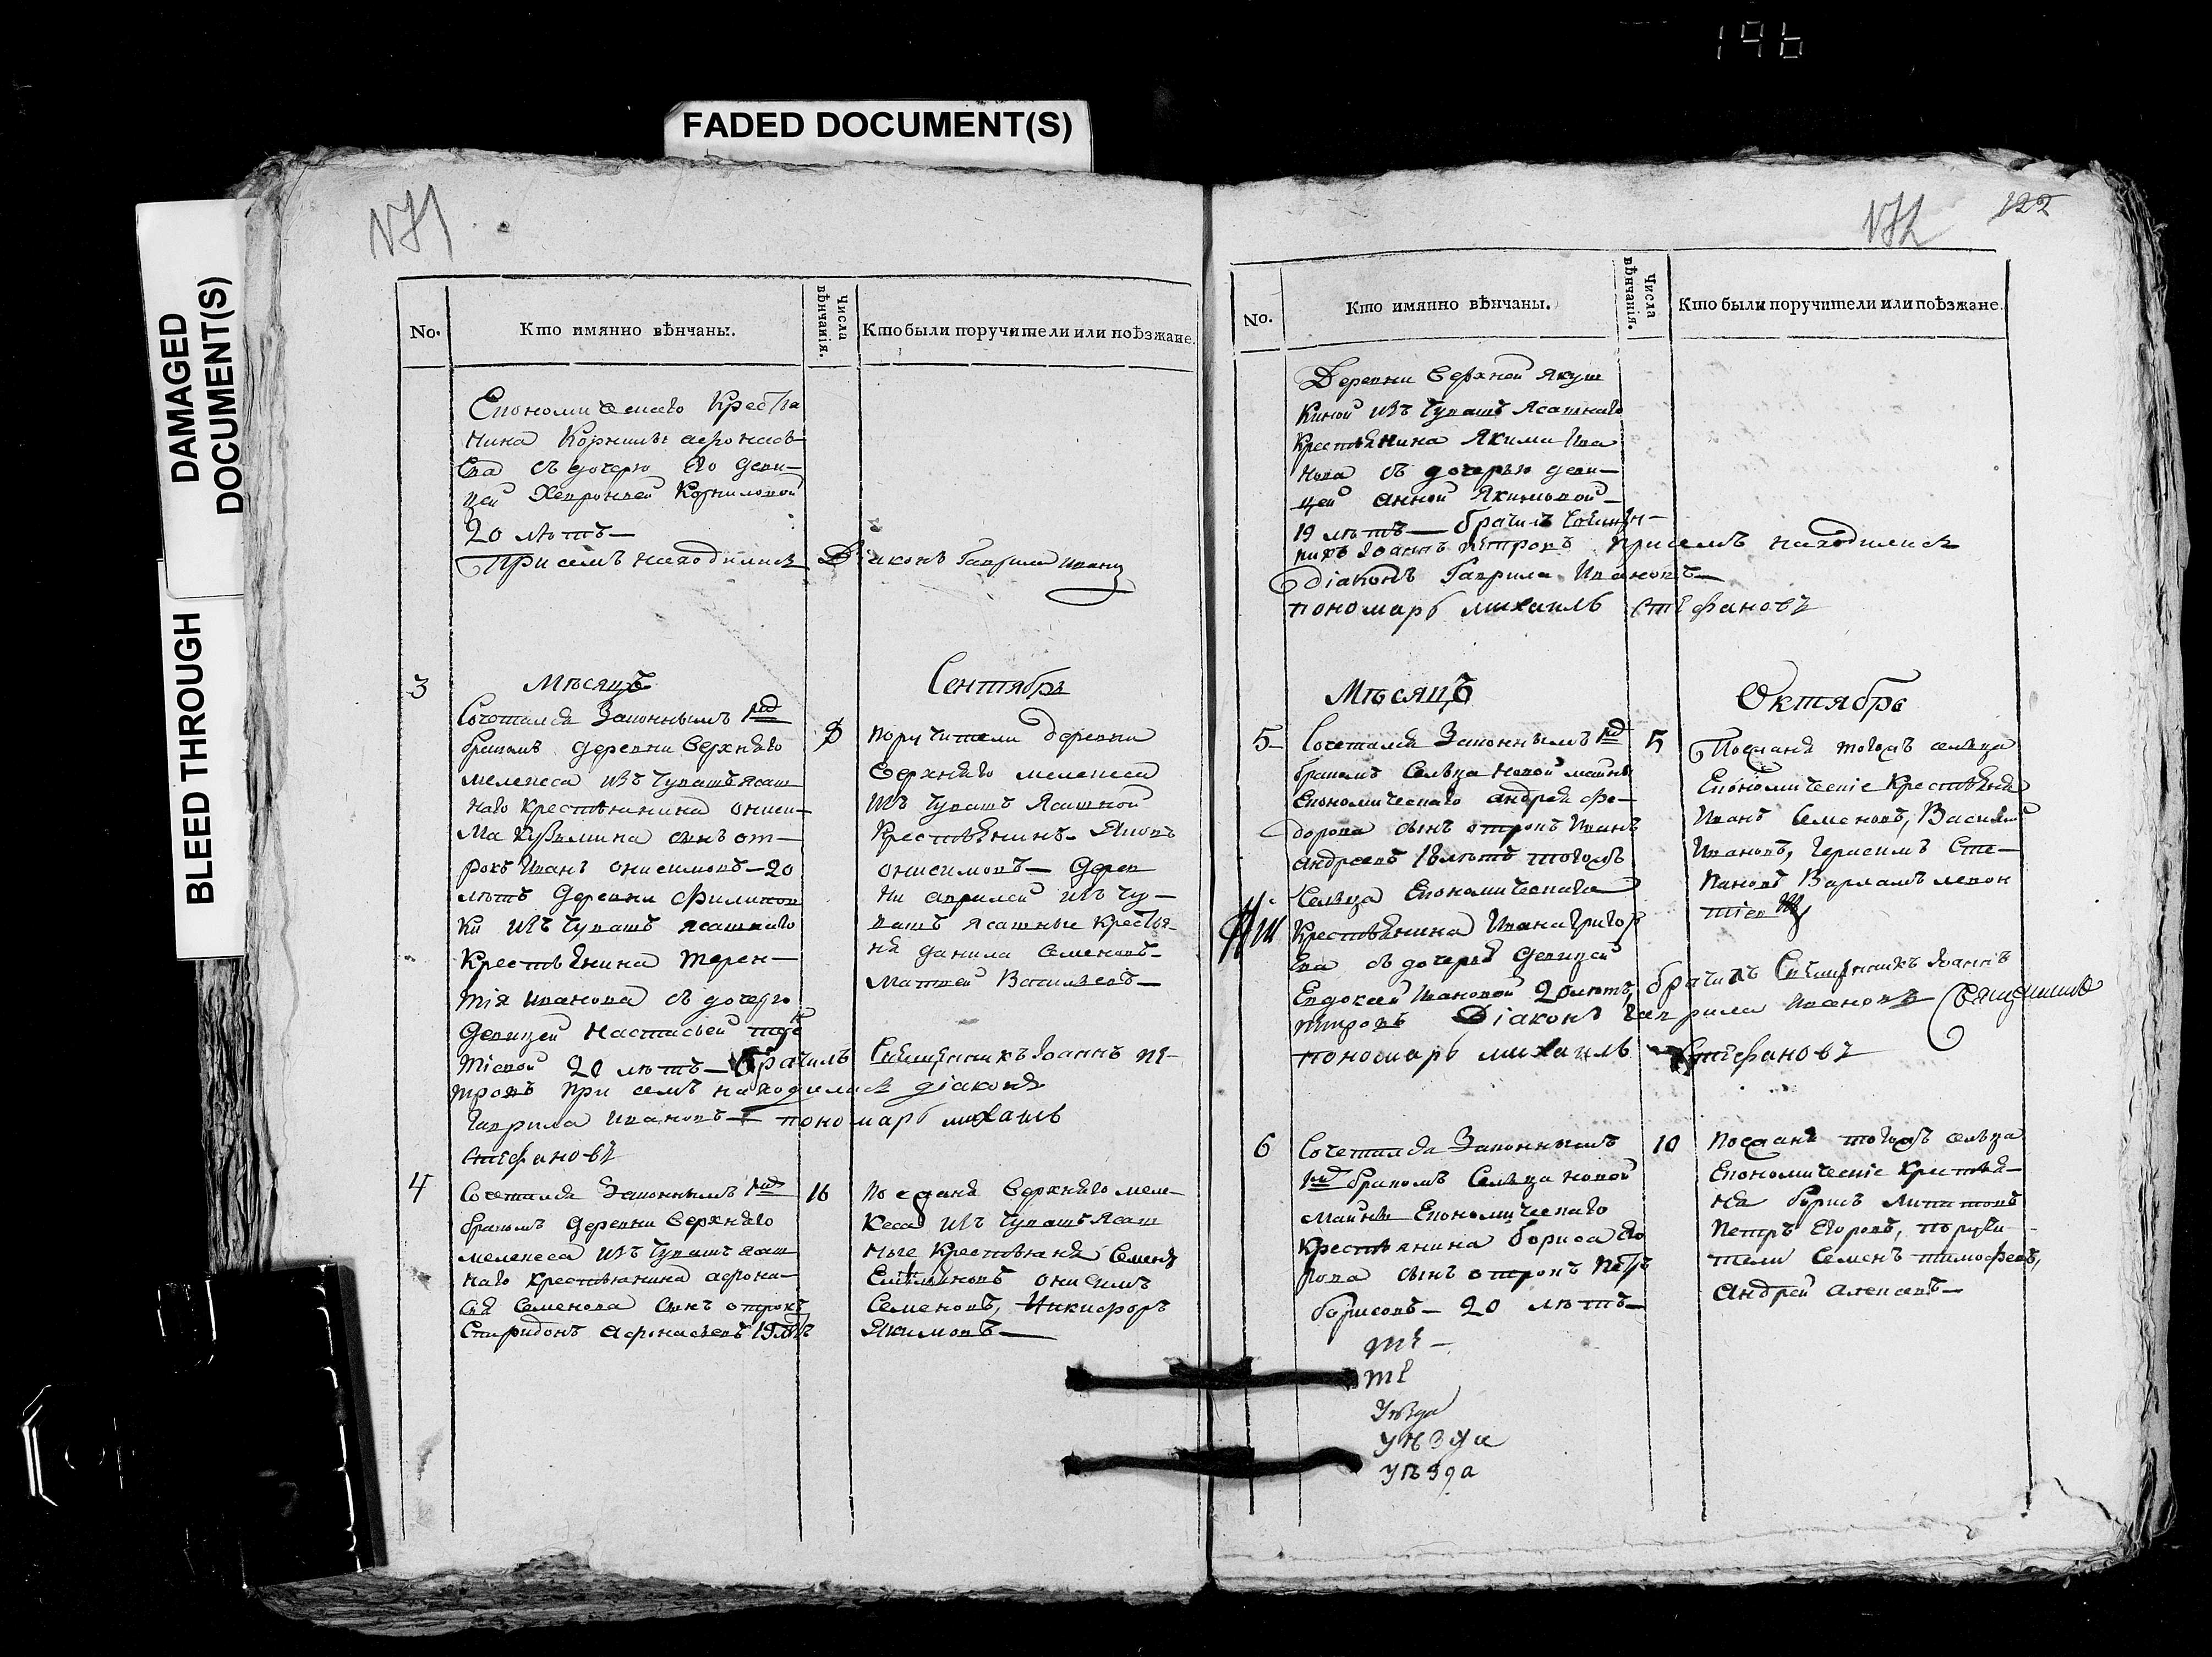 196
FADED DOCUMENT(S)
DAMAGED
DOCUMENT(S)
BLEED THROUGH
122
No.
Кто имянно вѣнчаны.
Числа
вѣнчанія.
Кто были поручители или поѣзжане.
Економическаго Крестья
нина Корнила афонась
ева съ дочерю его деви-
цей Корниловой
20 лѣтъ-
При семъ находился Діаконъ Гаврила Иванов
3
Мѣсяцъ Сентябрь
Сочетался Законнымъ 1мъ
бракомъ деревни Верхняго
мелекеса изъ Чувашъ ясаш
наго крестьянина ониси-
ма Кузьмина сынъ от-
рокъ Иванъ онисимовъ-20
лѣтъ деревни Филипов
ки изъ Чувашъ ясашнаго
крестьянина терен-
тія иванова съ дочерю
девицей Настасьей тере
тіевой 20 лѣтъ- брачилъ Священникъ Іоаннъ пе-
тровъ при семъ находился діаконъ
гаврила ивановъ- пономарь михаилъ
стефановъ
8
поручители деревни
Верхняго мелекеса
изъ чувашъ Ясашной
Крестьянинъ- Яковъ
онисимовъ- дерев
ни аврилей изъ чу-
вашъ ясашные крестья-
ня данила Семеновъ-
матвей Васильевъ-
4
Сочетался Законнымъ 1мъ
бракомъ деревни Верхняго
мелекеса изъ Чувашъ ясаш
наго крестьянина афона-
сия Семенова сынъ отрокъ
Спиридонъ афонасьевъ 19лѣтъ
16
Поезжаня Верхняго меле-
кеса изъ Чувашъ Ясаш
ные Крестьяня Семенъ
Емельяновъ онисимъ
Семеновъ, Никифоръ
Якимовъ-
No.
Кто имянно вѣнчаны.
Числа
вѣнчанія.
Кто были поручители или поѣзжане.
Деревни Верхней Якуш
киной изъ Чувашъ Ясашнаго
Крестьянина Якима Ива
нова съ дочерью деви-
цей анной Якимовой-
19 лѣтъ- брачилъ Священ-
никъ Іоаннъ петровъ При семъ находился
діаконъ Гаврила Ивановъ-
пономарь михаилъ стефановъ
Мѣсяцъ Октябрь
5
Сочетался Законнымъ 1мъ
бракомъ Сельца Новой майны
Економическаго андрея фе-
дорова сынъ отрокъ Иванъ
андреевъ 18лѣтъ тогожъ
Сельца Економическаго
Крестьянина Ивана Григор
ева съ дочерью девицей
Евдокией Ивановой 20лѣтъ, брачилъ Священникъ Іоаннъ
петровъ Діаконъ Гаврила Ивановъ
пономарь михаилъ Стефановъ
5
Поезжаня тогожъ сельца
Економическіе Крестьяня
Иванъ Семеновъ, Василей
Ивановъ, Герасимъ Сте-
пановъ Варламъ левон
тіев
6
Сочетался Законнымъ
1мъ бракомъ Сельца новой
майны Економическаго
крестьянина бориса его
рова сынъ отрокъ Петръ
борисовъ- 20 лѣтъ-
те-
те
Уѣзда
уѣзда
уѣзда
10
поезжаня тогожъ сельца
Економическіе Крестья-
ня борисъ
Петръ Егоровъ, поручи-
тели Семенъ тимофеевъ,
андрей алексевъ-